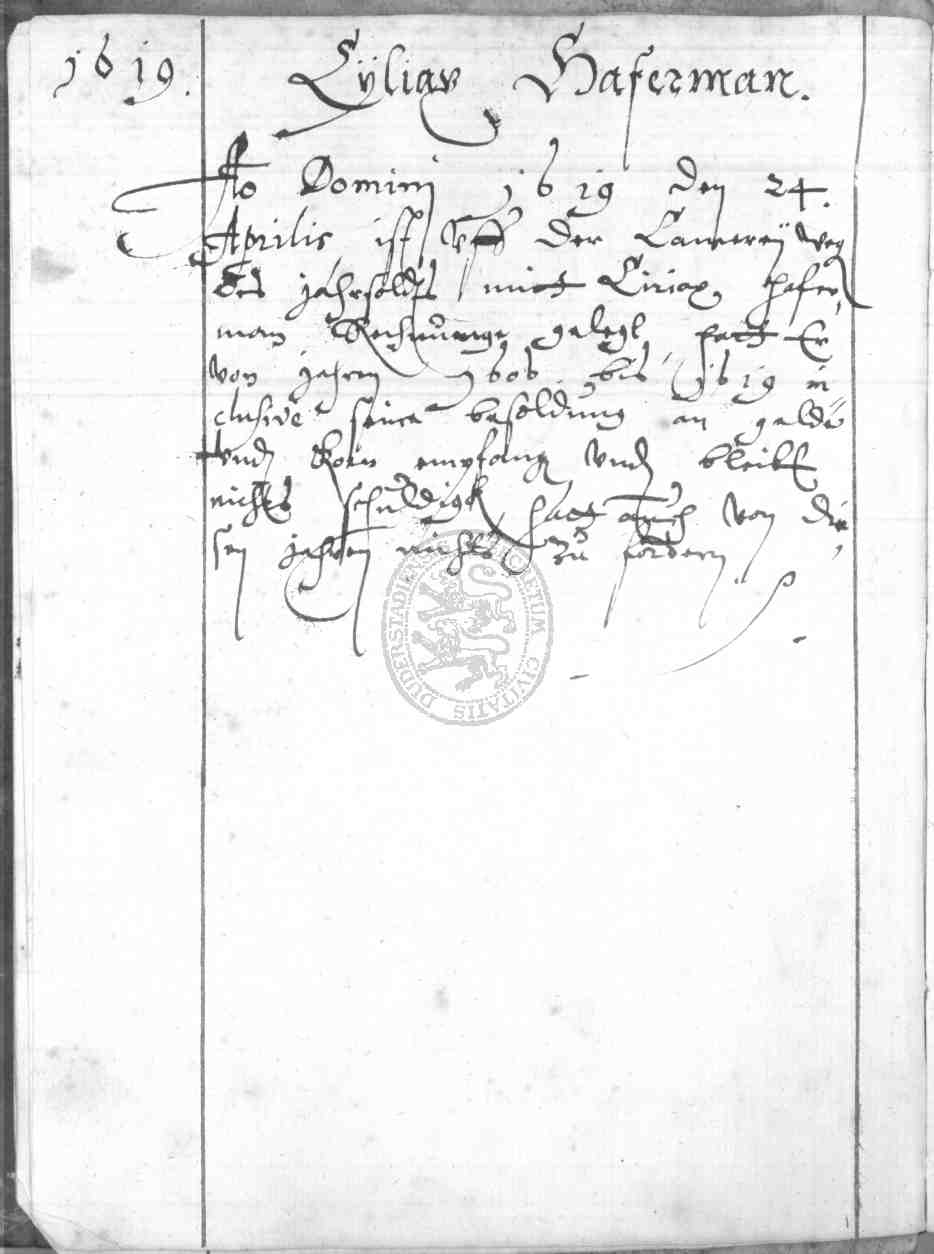 1619. Cÿliax Haferman.
Ao Domini 1619 den 24.
Aprilis ist vff der Cammereÿ weg
des jahrsoldts mitt Ciriax Hafer,
man Rechnunge gelegt, hatt Er
von jahren 1606 bis 1619 in
clusive seine besoldung an gelde
vnd Korn empfang vnd bleibt
nichts schuldigk, hatt auch von die,
sen jahren nichts zu fordern.
DUDERSTADIENSIS SECRETUM CIVITATIS